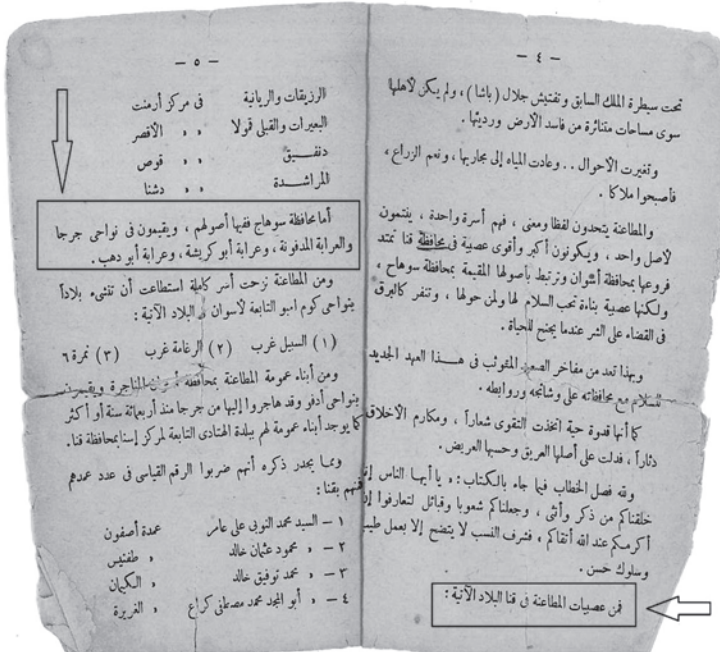 — ٤ —
تحت سيطرة الملك السابق وتفتيش جلال (باشا)، ولم يكن لأهلها
سوى مساحات متناثرة من فاسد الأرض ورديئها .
وتغيرت الأحوال .. وعادت المياه إلى مجاريها ، ونعم الزراع ،
فأصبحوا ملاكا .
والمطاعنة يتحدون لفظا ومعنى ، فهم أسرة واحدة ، ينتمون
لأصل واحد ، ويكونون أكبر وأقوى عصبية فى محافظة قنا تمتد
فروعها بمحافظة أسوان وترتبط بأصولها المقيمة بمحافظة سوهاج ،
ولكنها عصبية بناءة تحب السلام لها ولمن حولها ، وتنفر كالبرق
فى القضاء على الشر عندما يجنح للحياة .
وبهذا تعد من مفاخر الصعيد المتوثب فى هذا العهد الجديد
للسلام مع محافظاته على وشائجه وروابطه .
كما أنها قدوة حية اتخذت التقوى شعاراً ، ومكارم الأخلاق
دثاراً ، فدلت على أصلها العريق وحسبها العريض .
ولله فصل الخطاب فيما جاء بالكتاب : « يا أيها الناس إنا
خلقناكم من ذكر وأنثى ، وجعلناكم شعوبا وقبائل لتعارفوا إن
أكرمكم عند الله أتقاكم ، فشرف النسب لا يتضح إلا بعمل طيب
وسلوك حسن .
فمن عصبيات المطاعنة فى قنا البلاد الآتية :
— ٥ —
الرزيقات والريانية فى مركز أرمنت
البعيرات والقبلى قمولا » » الأقصر
دنفيق » » قوص
المراشدة » » دشنا
أما محافظة سوهاج ففيها أصولهم ، ويقيمون فى نواحى جرجا
والعرابة المدفونة ، وعرابة أبو كريشة ، وعرابة أبو دهب .
ومن المطاعنة نزحت أسر كاملة استطاعت أن تنشىء بلاداً
بنواحى كوم امبو التابعة لأسوان البلاد الآتية :
(١) السبيل غرب (٢) الرغامة غرب (٣) نمرة ٦
ومن أبناء عمومة المطاعنة بمحافظة أسوان المناجرة ويقيمون
بنواحى أدفو وقد هاجروا إليها من جرجا منذ أربعمائة سنة أو أكثر
كما يوجد أبناء عمومة لهم ببلدة الهنادى التابعة لمركز إسنا بمحافظة قنا .
ومما يجدر ذكره أنهم ضربوا الرقم القياسى فى عدد عمدهم
بقنا :
١ – السيد محمد النوبى على عامر عمدة أصفون
٢ – » محمود عثمان خالد » طفنيس
٣ – » محمد توفيق خالد » الكيمان
٤ – » أبو المجد محمد مصطفى كراع » الغريرة